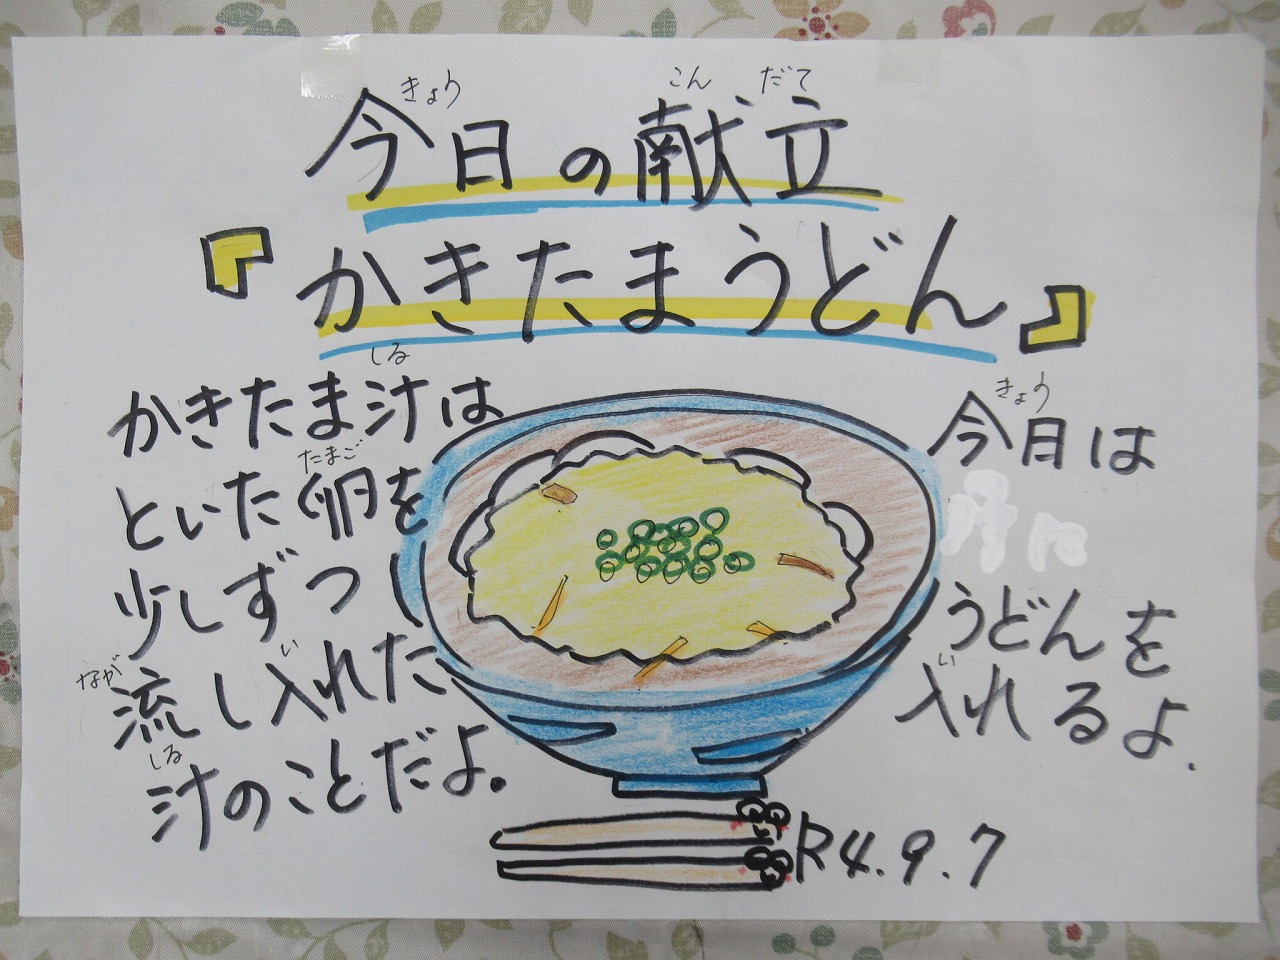 今日の献立
きょう こんだて
『かきたまうどん』
かきたま汁は
しる
といた卵を
たまご
少しずつ
流し入れた
なが い
汁のことだよ。
しる
今日は
きょう
うどんを
入れるよ.
い
R4.9.7